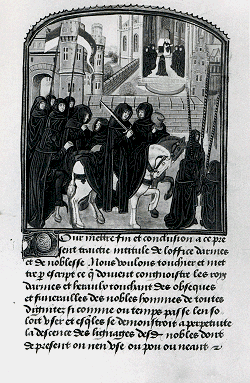 Pour mettre fin et conclusion a ce pre
sent traictie intitule de loffice darmes
et de noblesse. Nous voulons toucher et met
tre p escript ce q̄ doivent congnoistre les roys
darmes et heraulx touchant des obseques
et funerailles des nobles hommes de toutes
dignitez si comme ou temps passe len so
loit user et esq̄les se demonstroit a perpetuite
la descence des lignages desd nobles dont
de present on nen use ou pou ou neant